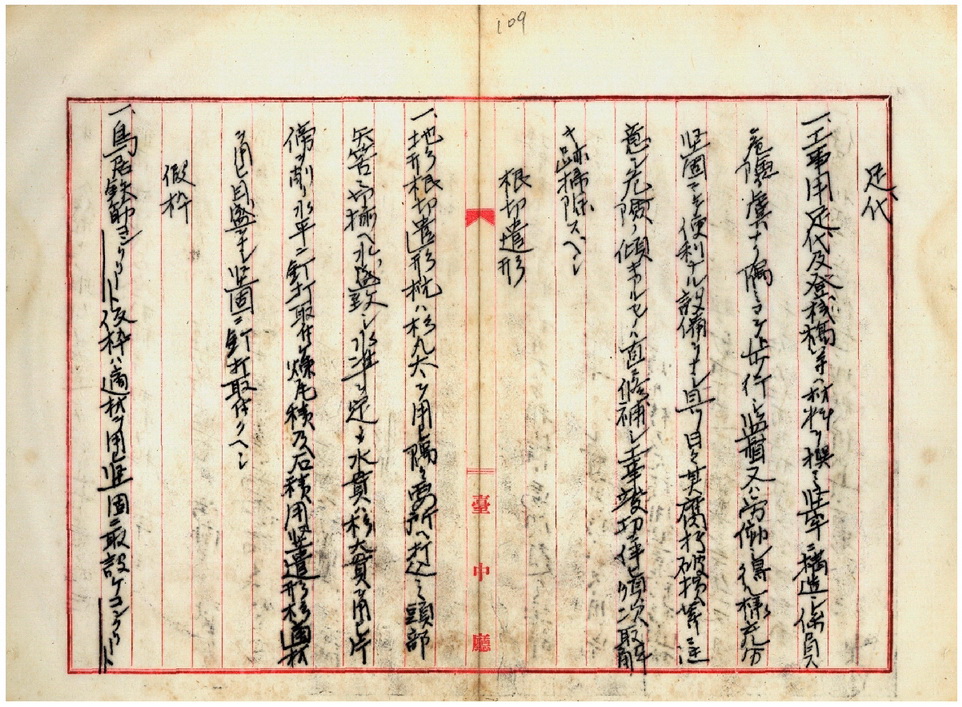 109
足代
一、工事用足代及登桟橋等ハ材料ヲ撰ミ堅牢ニ構造シ係員ノ
危険ノ虞ナク隅々マデ歩行シ監督又ハ労働シ得ル様充分
堅固ニシテ便利ナル設備ヲナシ且ツ日々其腐朽破損等ニ注
意シ危険ノ傾キアルモノハ直ニ修補シ工事竣功ニ伴ヒ順次取解
キ跡掃除スベシ
根切遣形
一、地形根切遣形杭ハ杉丸太ヲ用ヒ隅々要所ヘ打込ミ頭部
矢筈ニ切揃ヘ水盛致シ水準ヲ定メ水貫ハ杉大貫ヲ用ヒ片
傍ヲ削リ水平ニ釘打取付ケ煉瓦積及石積用竪遣形ハ適材
ヲ用ヒ目盛ヲナシ堅固ニ釘打取付クヘシ
假枠
一、鳥居鉄筋コンクリート仮枠ハ適材ヲ用ヒ堅固ニ取設ケコンクリート
臺中廳